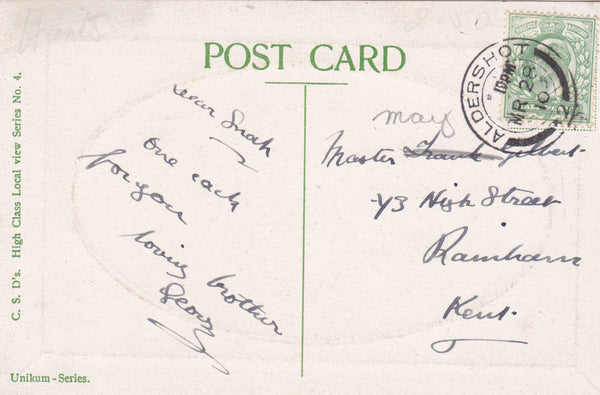 Hants
POST CARD
ALDERSHOT
MR 28
10
C. S. D's. High Class Local view Series No. 4.
Dear
one each
for you
loving brother
May
Master Frank Gilbert
43 High Street
Rainham
Kent.
Unikum - Series.